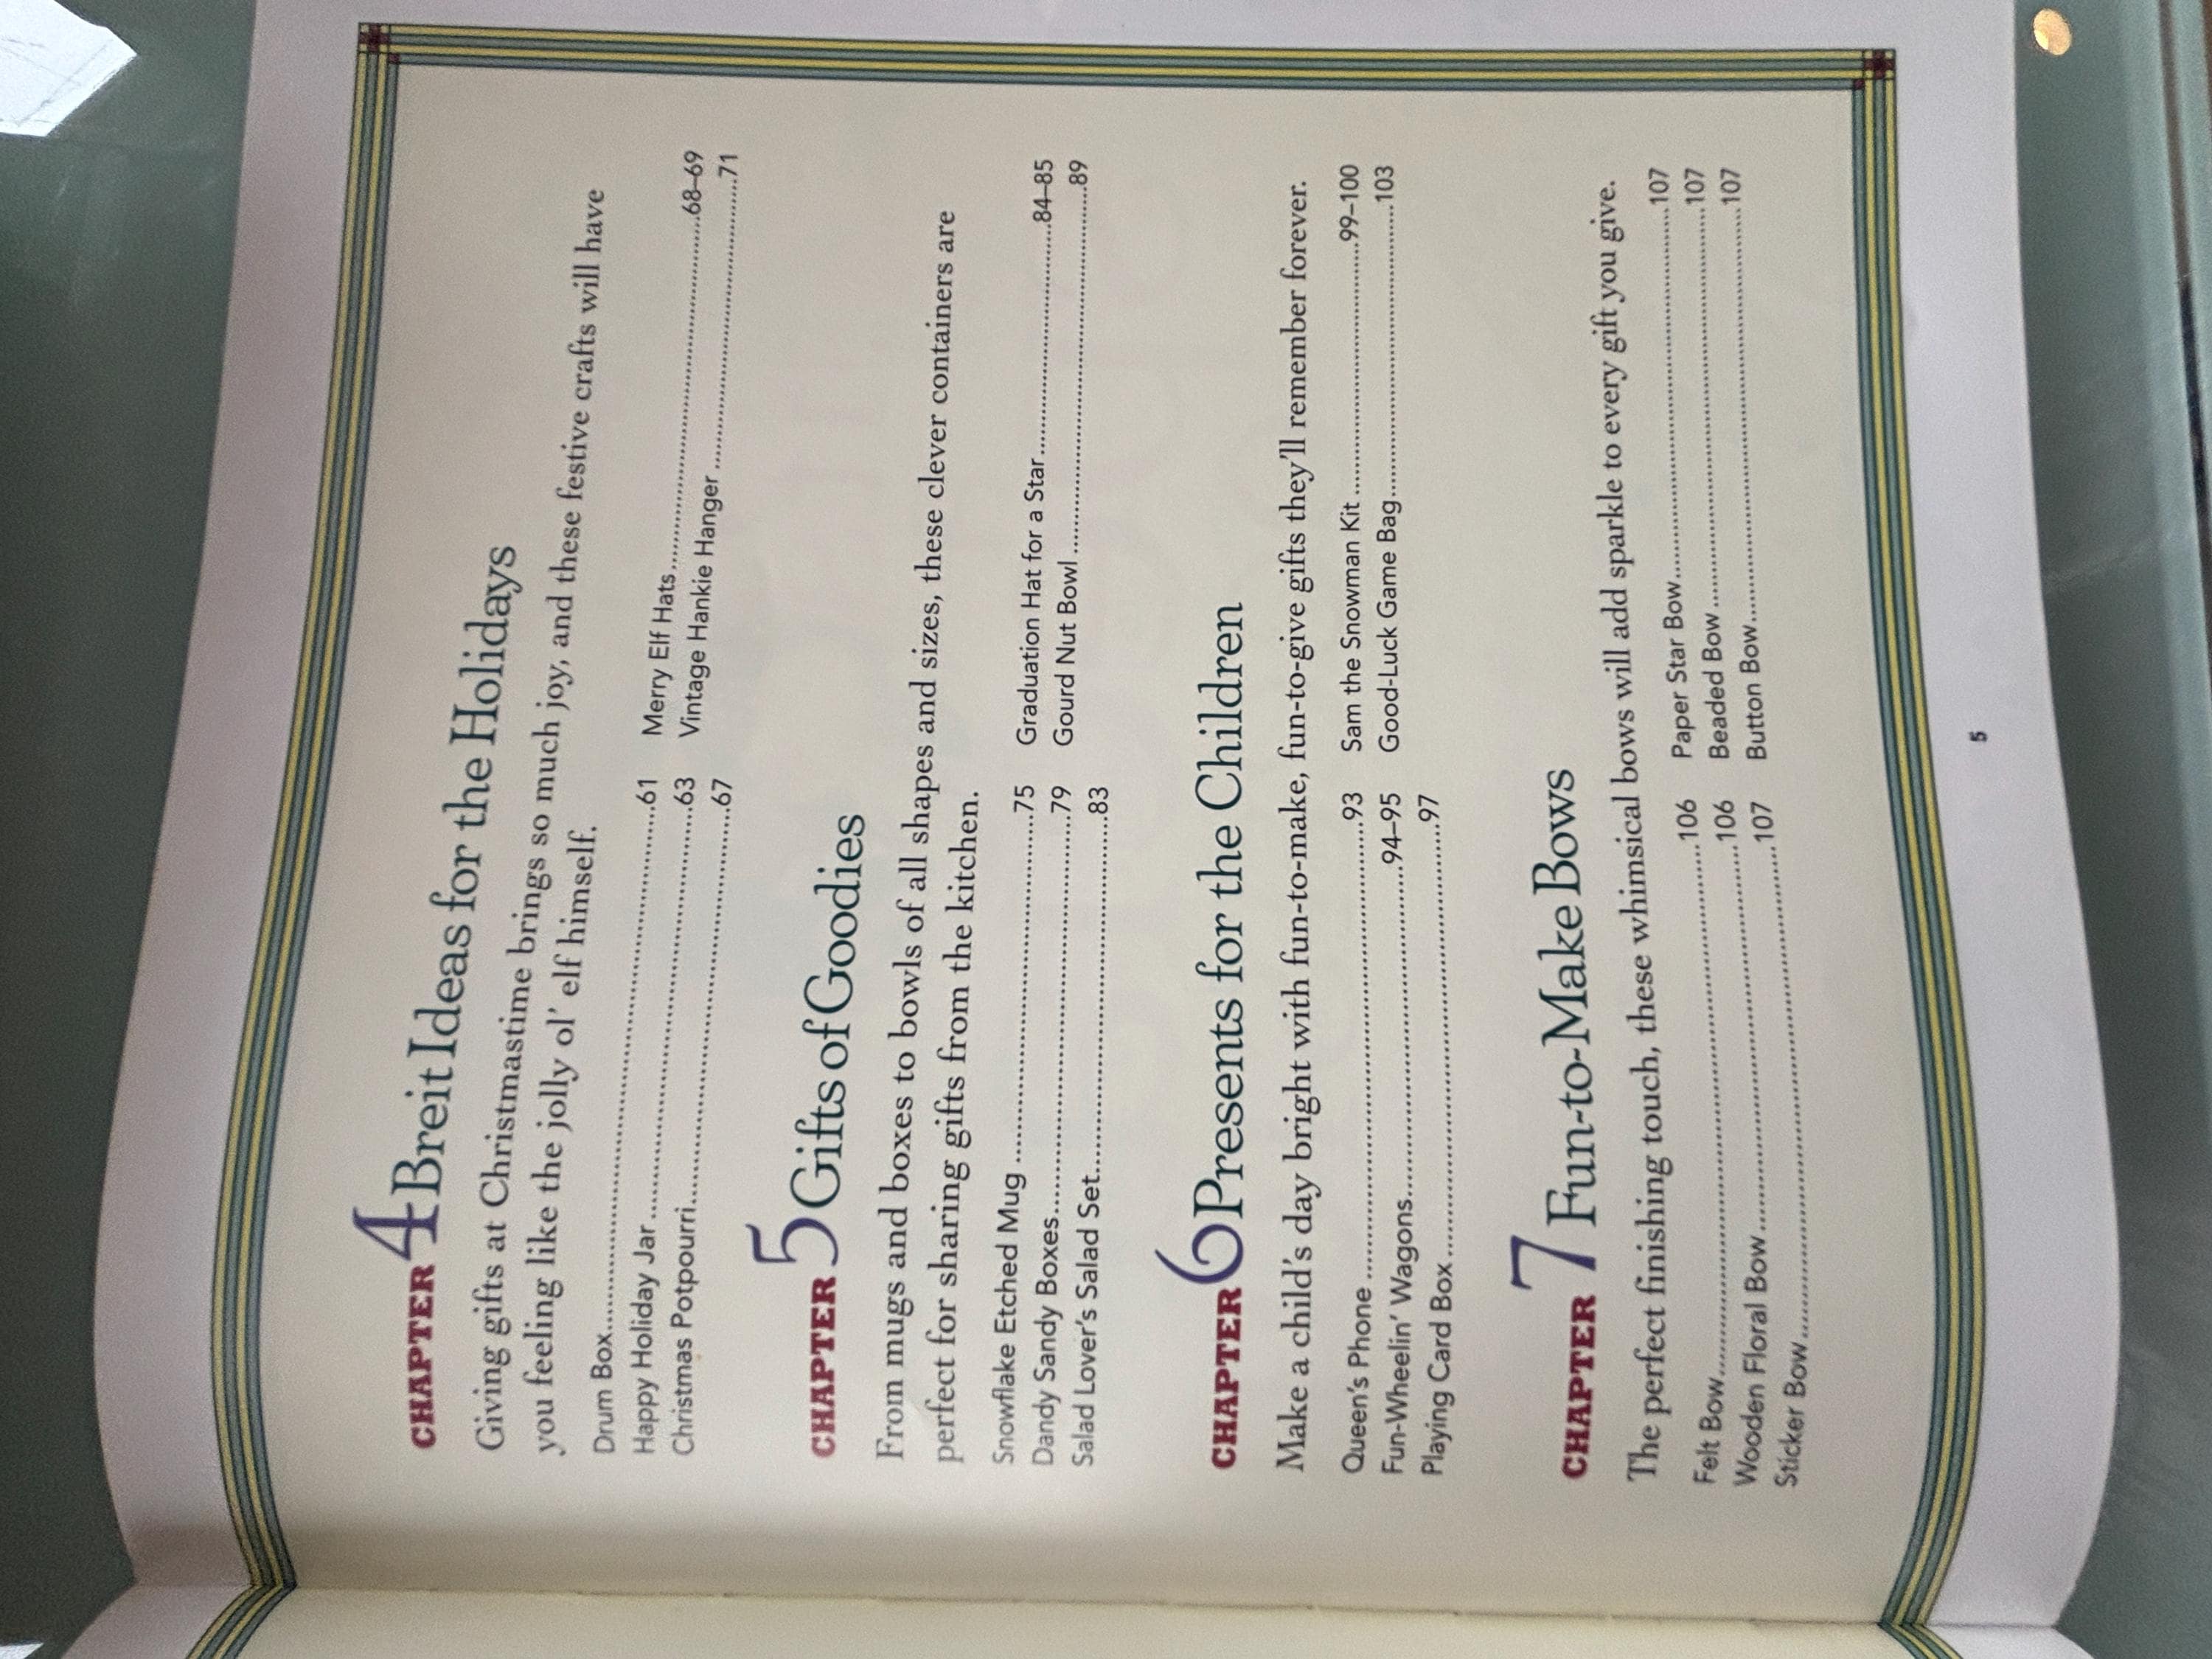 CHAPTER 4 Breit Ideas for the Holidays
Giving gifts at Christmastime brings so much joy, and these festive crafts will have
you feeling like the jolly ol' elf himself.
Drum Box..........61
Happy Holiday Jar..........63
Christmas Potpourri..........67
Merry Elf Hats..........68–69
Vintage Hankie Hanger..........71
CHAPTER 5 Gifts of Goodies
From mugs and boxes to bowls of all shapes and sizes, these clever containers are
perfect for sharing gifts from the kitchen.
Snowflake Etched Mug..........75
Dandy Sandy Boxes..........79
Salad Lover's Salad Set..........83
Graduation Hat for a Star..........84–85
Gourd Nut Bowl..........89
CHAPTER 6 Presents for the Children
Make a child's day bright with fun-to-make, fun-to-give gifts they'll remember forever.
Queen's Phone..........93
Fun-Wheelin' Wagons..........94–95
Playing Card Box..........97
Sam the Snowman Kit..........99–100
Good-Luck Game Bag..........103
CHAPTER 7 Fun-to-Make Bows
The perfect finishing touch, these whimsical bows will add sparkle to every gift you give.
Felt Bow..........106
Wooden Floral Bow..........106
Sticker Bow..........107
Paper Star Bow..........107
Beaded Bow..........107
Button Bow..........107
5